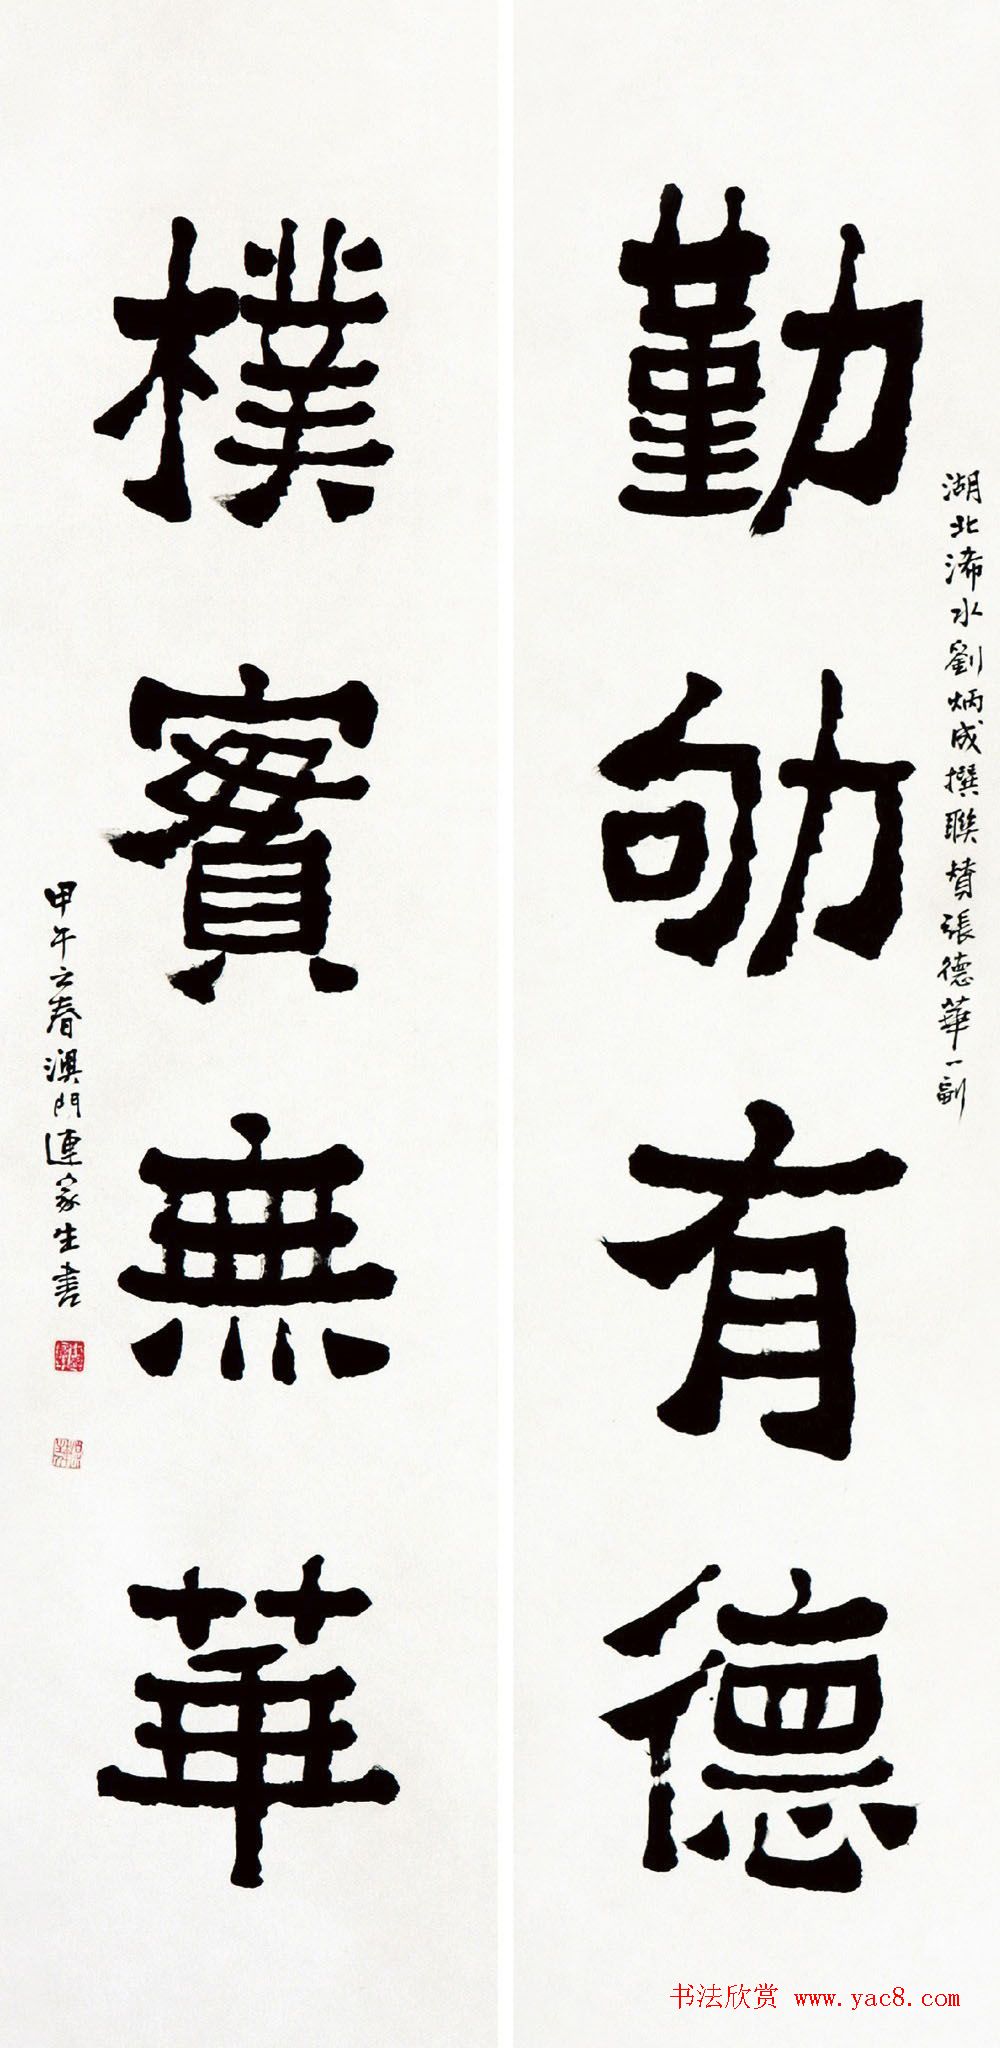 勤劬有德
湖北浠水劉炳成撰聯贊張德華一副
樸實無華
甲午之春澳門連家生書
书法欣赏 www.yac8.com